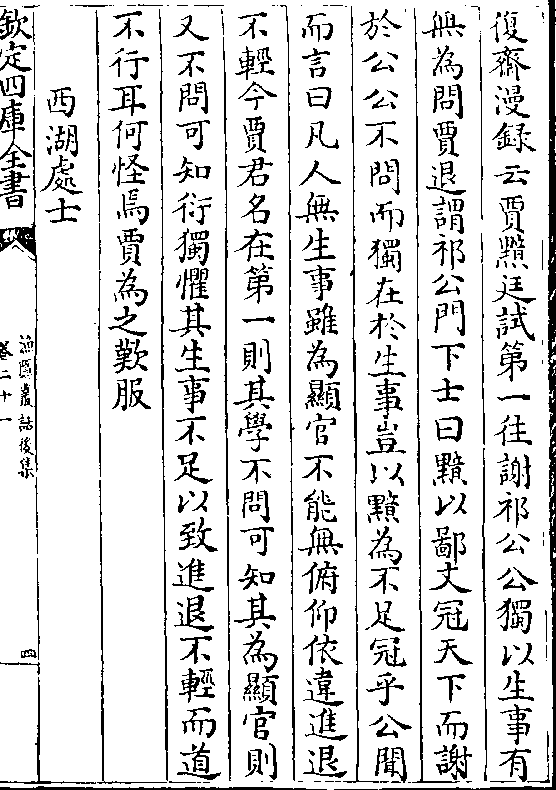 復齋漫録云賈黯廷試第一往謝祁公公獨以生事有
無為問賈退謂祁公門下士曰黯以鄙文冠天下而謝
於公公不問而獨在於生事豈以黯為不足冠乎公聞
而言曰凡人無生事雖為顯官不能無俯仰依違進退
不輕今賈君名在第一則其學不問可知其為顯官則
又不問可知衍獨懼其生事不足以致進退不輕而道
不行耳何怪焉賈為之歎服
西湖處士
欽定四庫全書
漁隱叢話後集
卷二十一
四